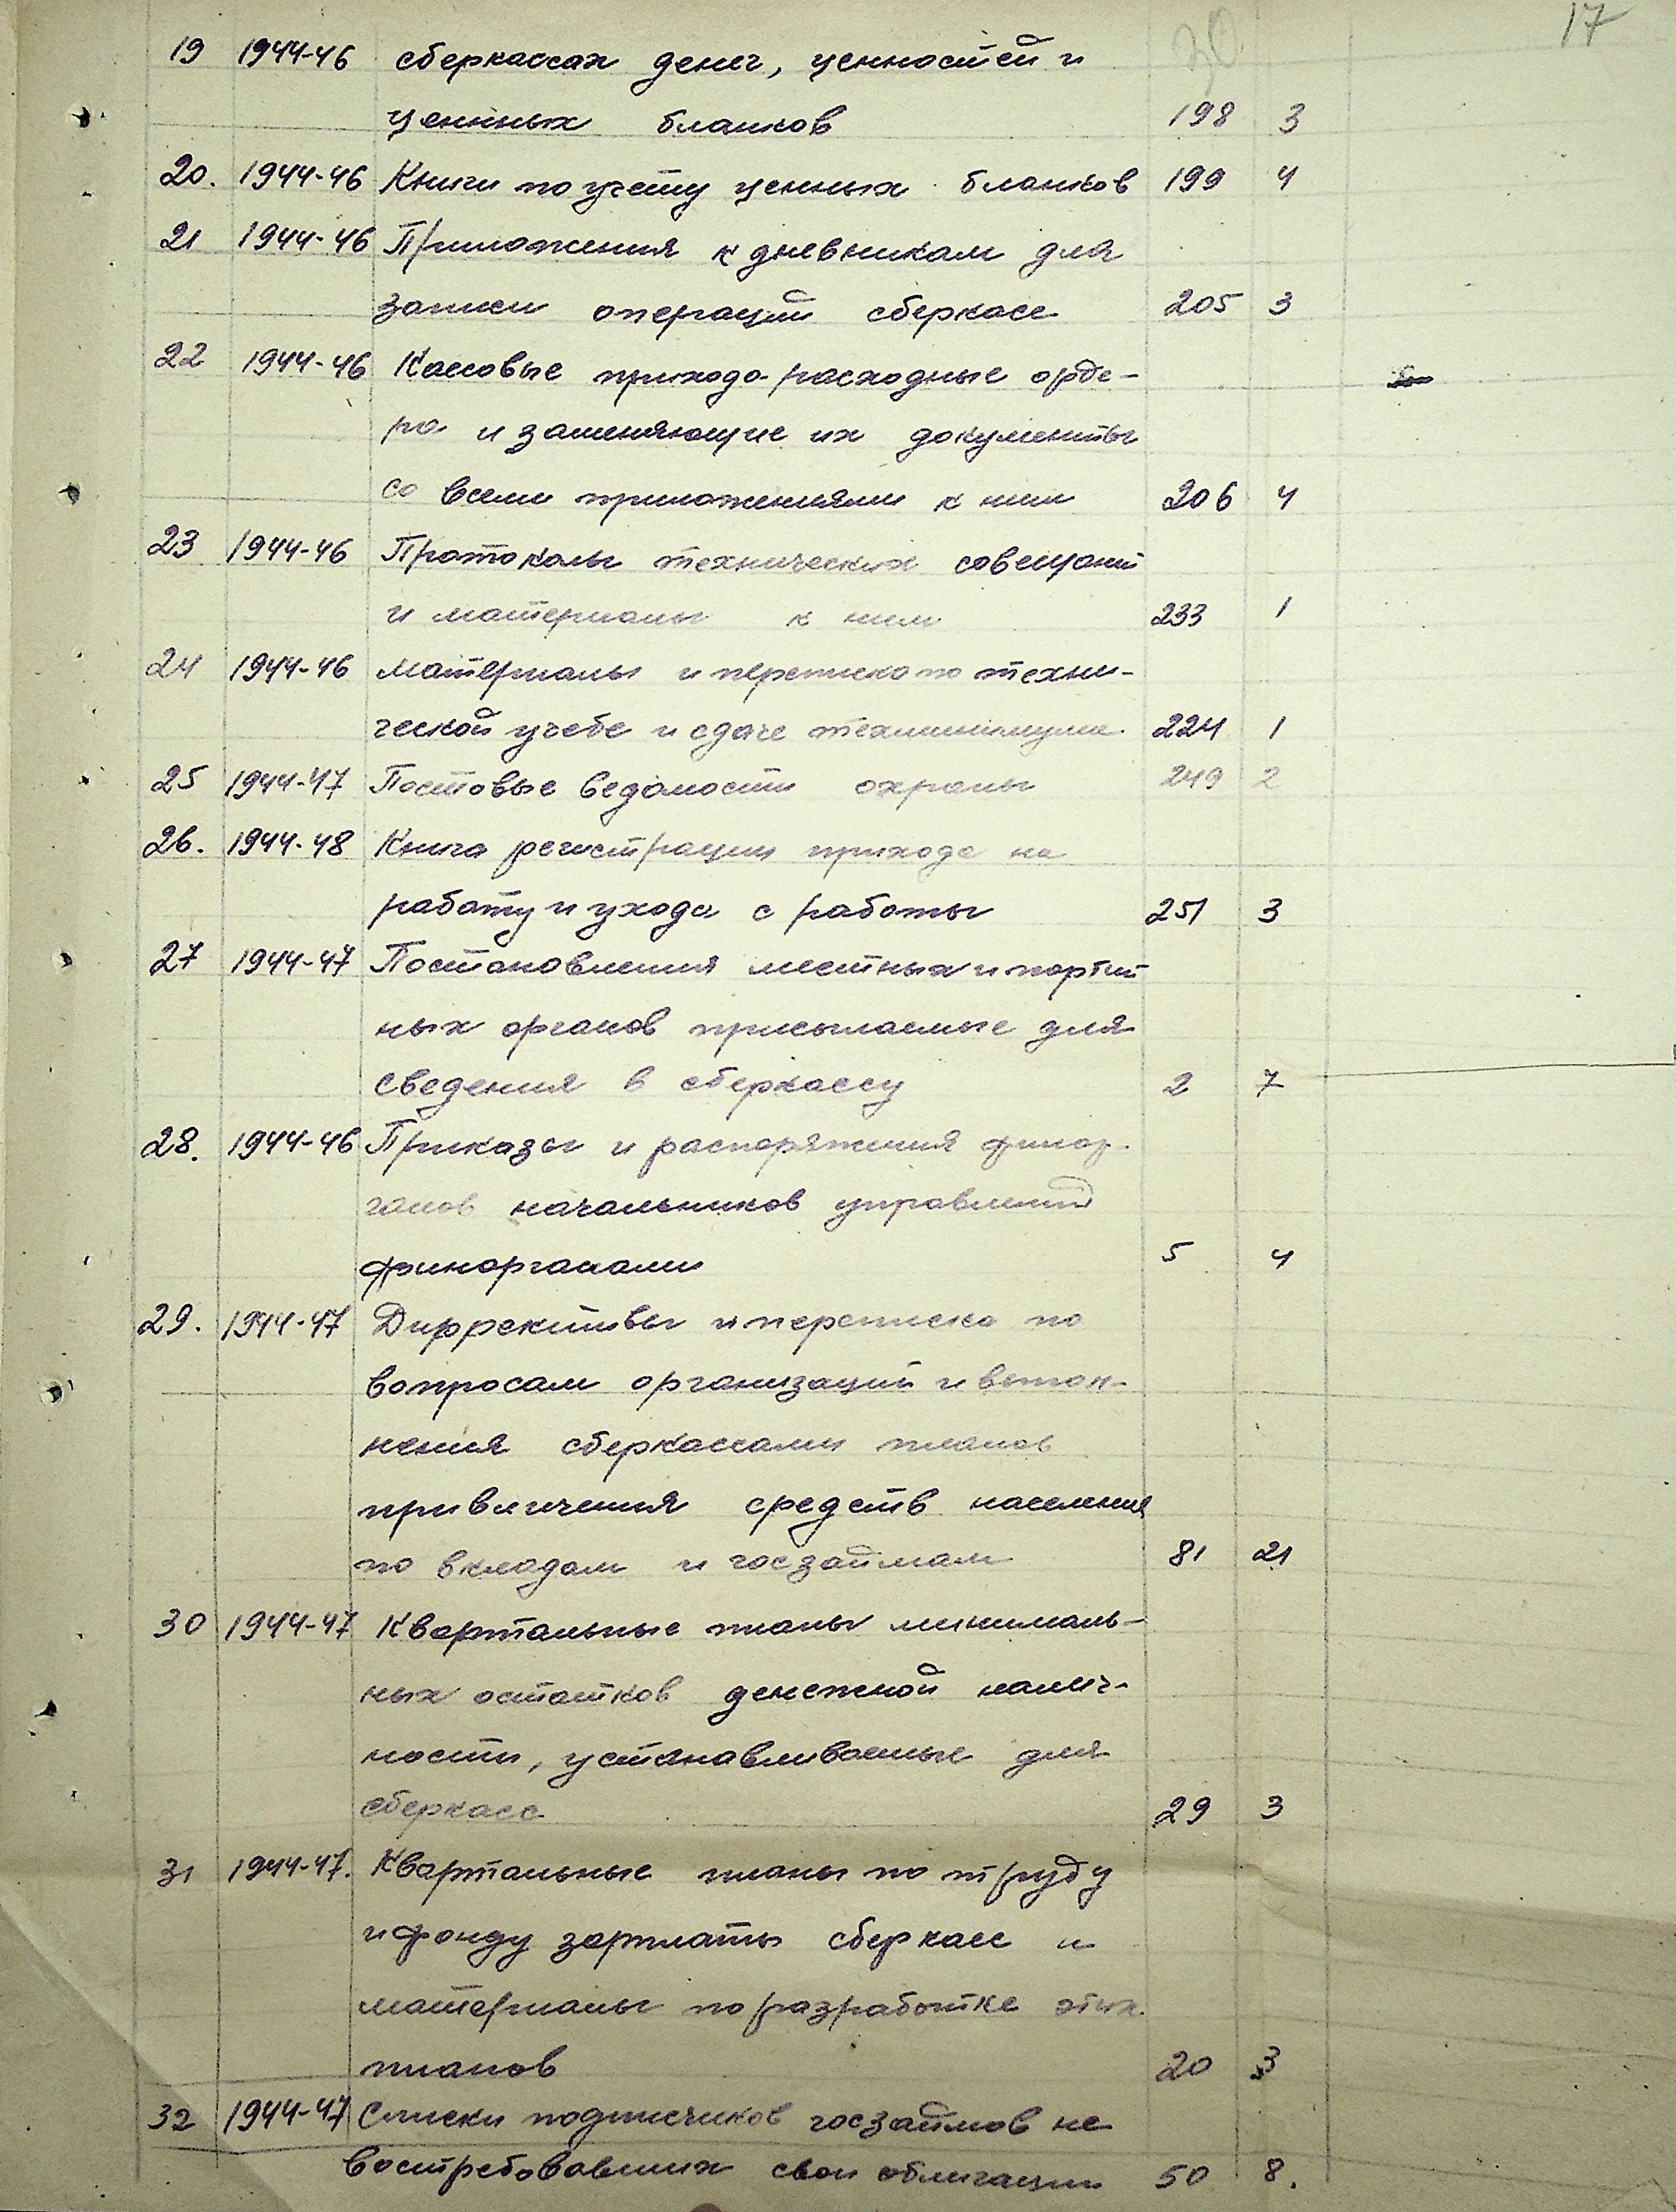 30 17
19 1944-46 сберкассах денег, ценностей и
ценных бланков 198 3
20. 1944-46 Книги по учету ценных бланков 199 4
21 1944-46 Приложения к дневникам для
записи операций сберкасс 205 3
22 1944-46 Кассовые приходо-расходные орде-
ра и заменяющие их документы
со всеми приложениями к ним 206 4
23 1944-46 Протоколы технических совещаний
и материалы к ним 233 1
24 1944-46 Материалы и переписка по техни-
ческой учебе и сдаче техминимума 224 1
25 1944-47 Постовые ведомости охраны 249 2
26. 1944-48 Книга регистрации прихода на
работу и ухода с работы 251 3
27 1944-47 Постановления местных и партий
ных органов присылаемые для
сведения в сберкассу 2 7
28. 1944-46 Приказы и распоряжения финор-
ганов начальников управлений
финорганами 5 4
29. 1944-47 Диррективы и переписка по
вопросам организаций и выпол-
нения сберкассами планов
привличения средств населения
по вкладам и госзаймам 81 21
30 1944-47 Квартальные планы минималь-
ных остатков денежной налич-
ности, устанавливаемые для
сберкасс 29 3
31 1944-47. Квартальные планы по труду
и фонду зарплаты сберкасс и
материалы по разработке этих
планов 20 3
32 1944-47 Списки подписчиков госзаймов не
востребовавших свои облигации 50 8.